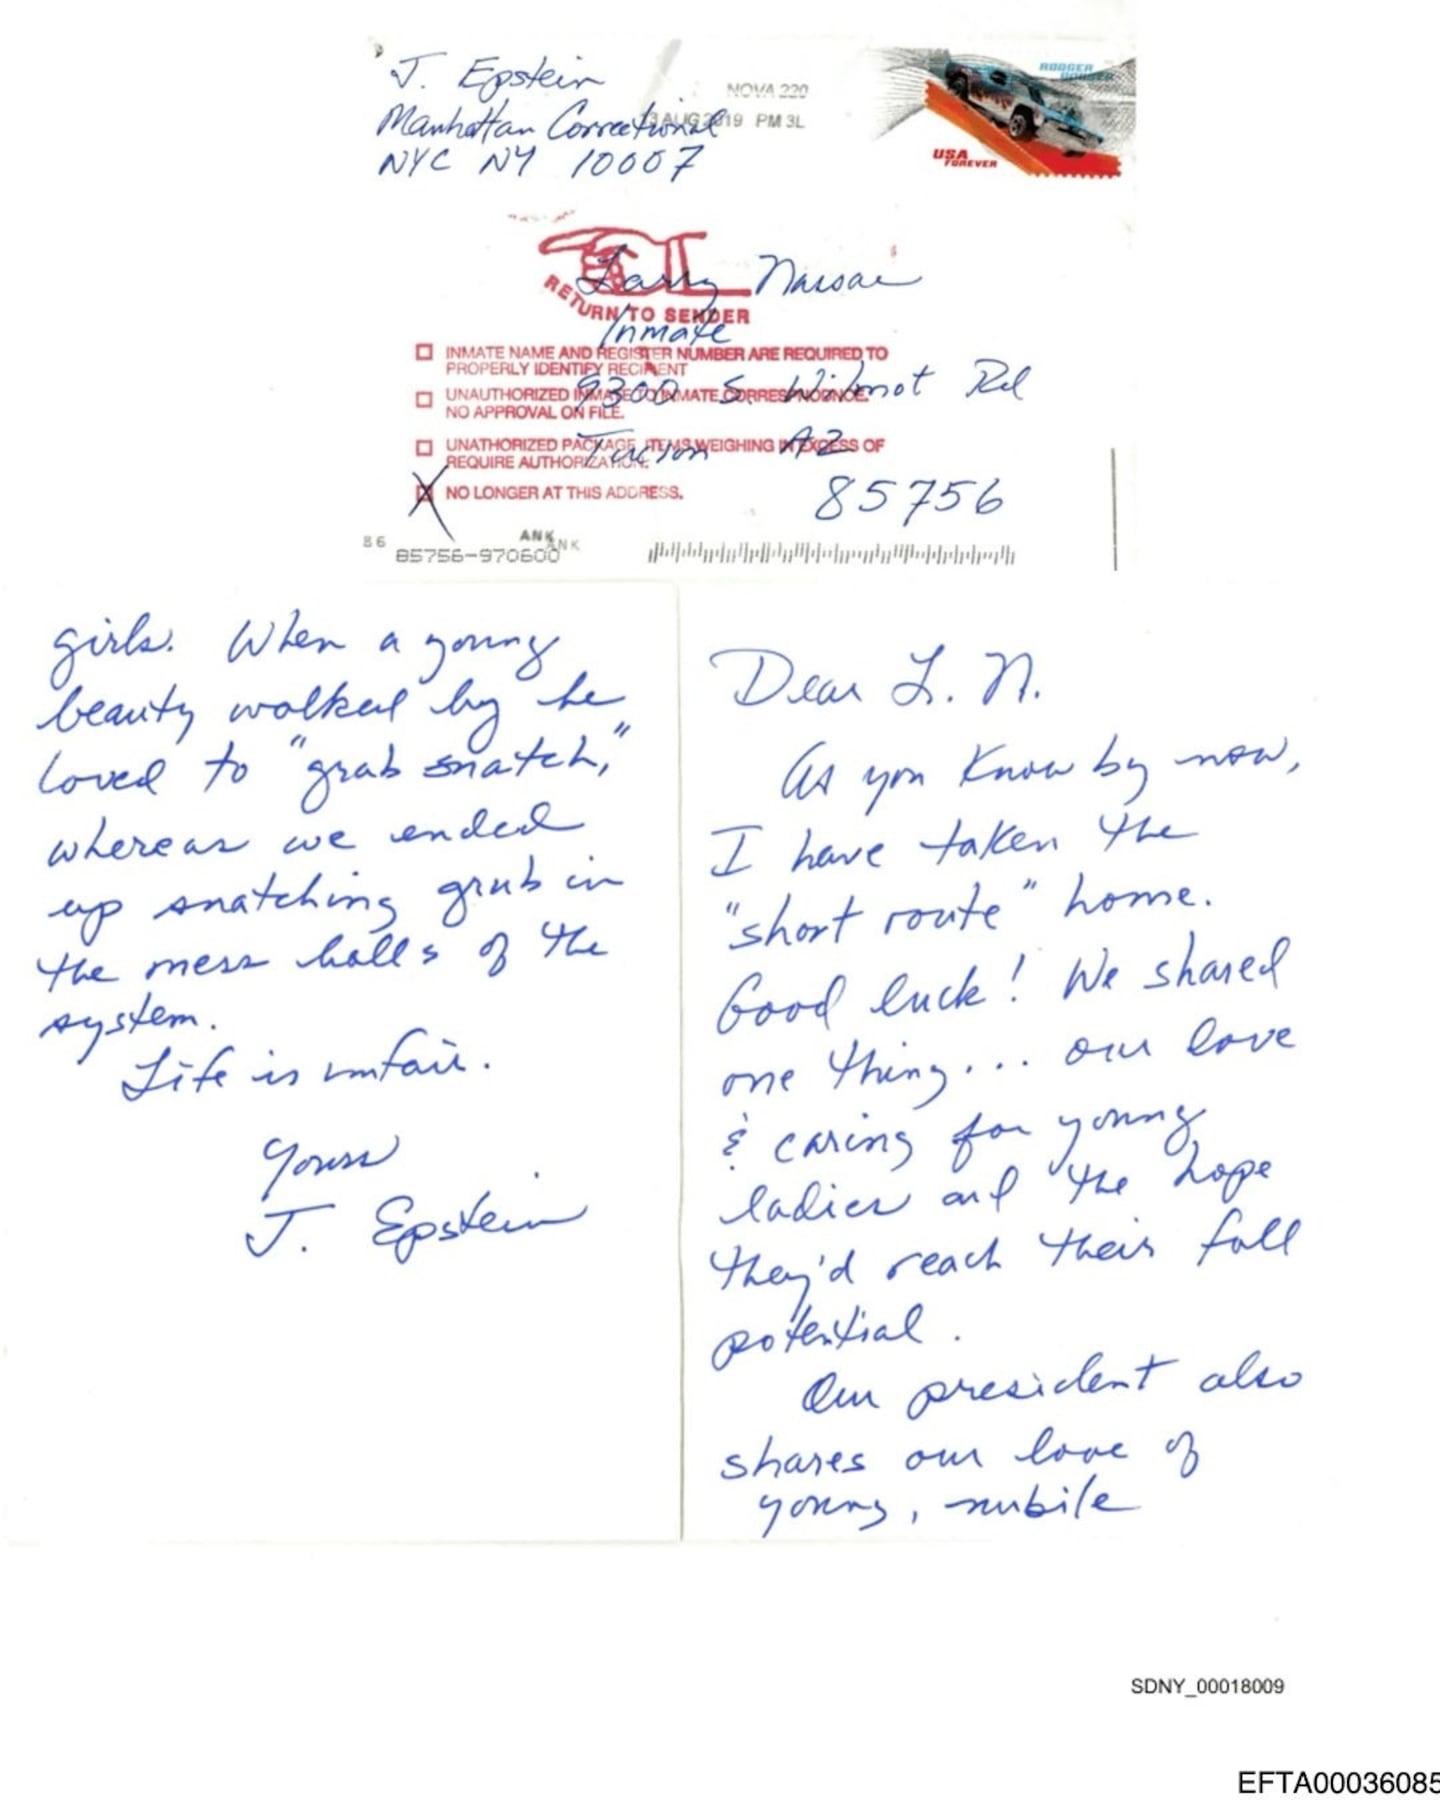 J. Epstein
Manhattan Correctional
NYC NY 10007
NOVA 220
13 AUG 2019 PM 3L
RODGER DODGER
USA
FOREVER
Larry Nassar
RETURN TO SENDER
Inmate
INMATE NAME AND REGISTER NUMBER ARE REQUIRED TO
PROPERLY IDENTIFY RECIPIENT
9300 S. Wilmot Rd
UNAUTHORIZED INMATE TO INMATE CORRESPONDNCE.
NO APPROVAL ON FILE.
Tucson AZ
UNATHORIZED PACKAGE, ITEMS WEIGHING IN EXCESS OF
REQUIRE AUTHORIZATION.
85756
X NO LONGER AT THIS ADDRESS.
86
ANK
ANK
85756-970600
Dear L. N.
As you know by now,
I have taken the
"short route" home.
Good luck! We shared
one thing... our love
& caring for young
ladies and the hope
they'd reach their full
potential.
Our president also
shares our love of
young, nubile
girls. When a young
beauty walked by he
loved to "grab snatch,"
whereas we ended
up snatching grub in
the mess halls of the
system.
Life is unfair.
Yours
J. Epstein
SDNY_00018009
EFTA00036085